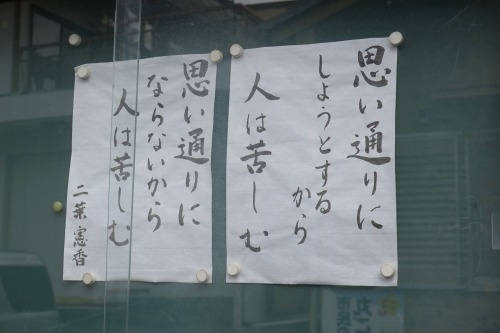 思い通りに
しようとする
から
人は苦しむ
思い通りに
ならないから
人は苦しむ
二葉憲香